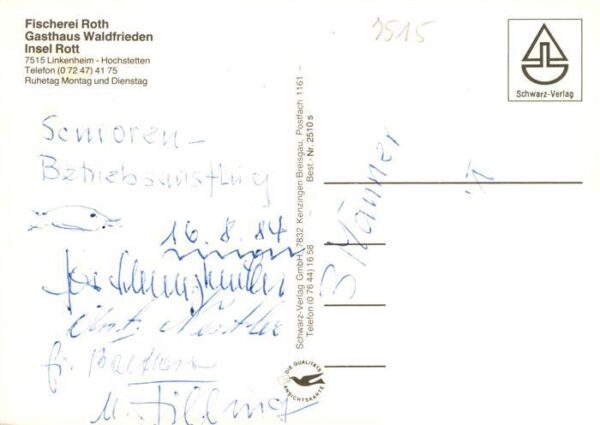 Fischerei Roth
Gasthaus Waldfrieden
Insel Rott
7515 Linkenheim - Hochstetten
Telefon (0 72 47) 41 75
Ruhetag Montag und Dienstag
7515
Schwarz-Verlag
Senioren-
Betriebsausflug
16.8.84
3 Männer
Schwarz-Verlag GmbH, 7832 Kenzingen Breisgau, Postfach 1161 –
Telefon (0 76 44) 16 58 – Best.-Nr. 2510 s
DIE QUALITÄTS
ANSICHTSKARTE